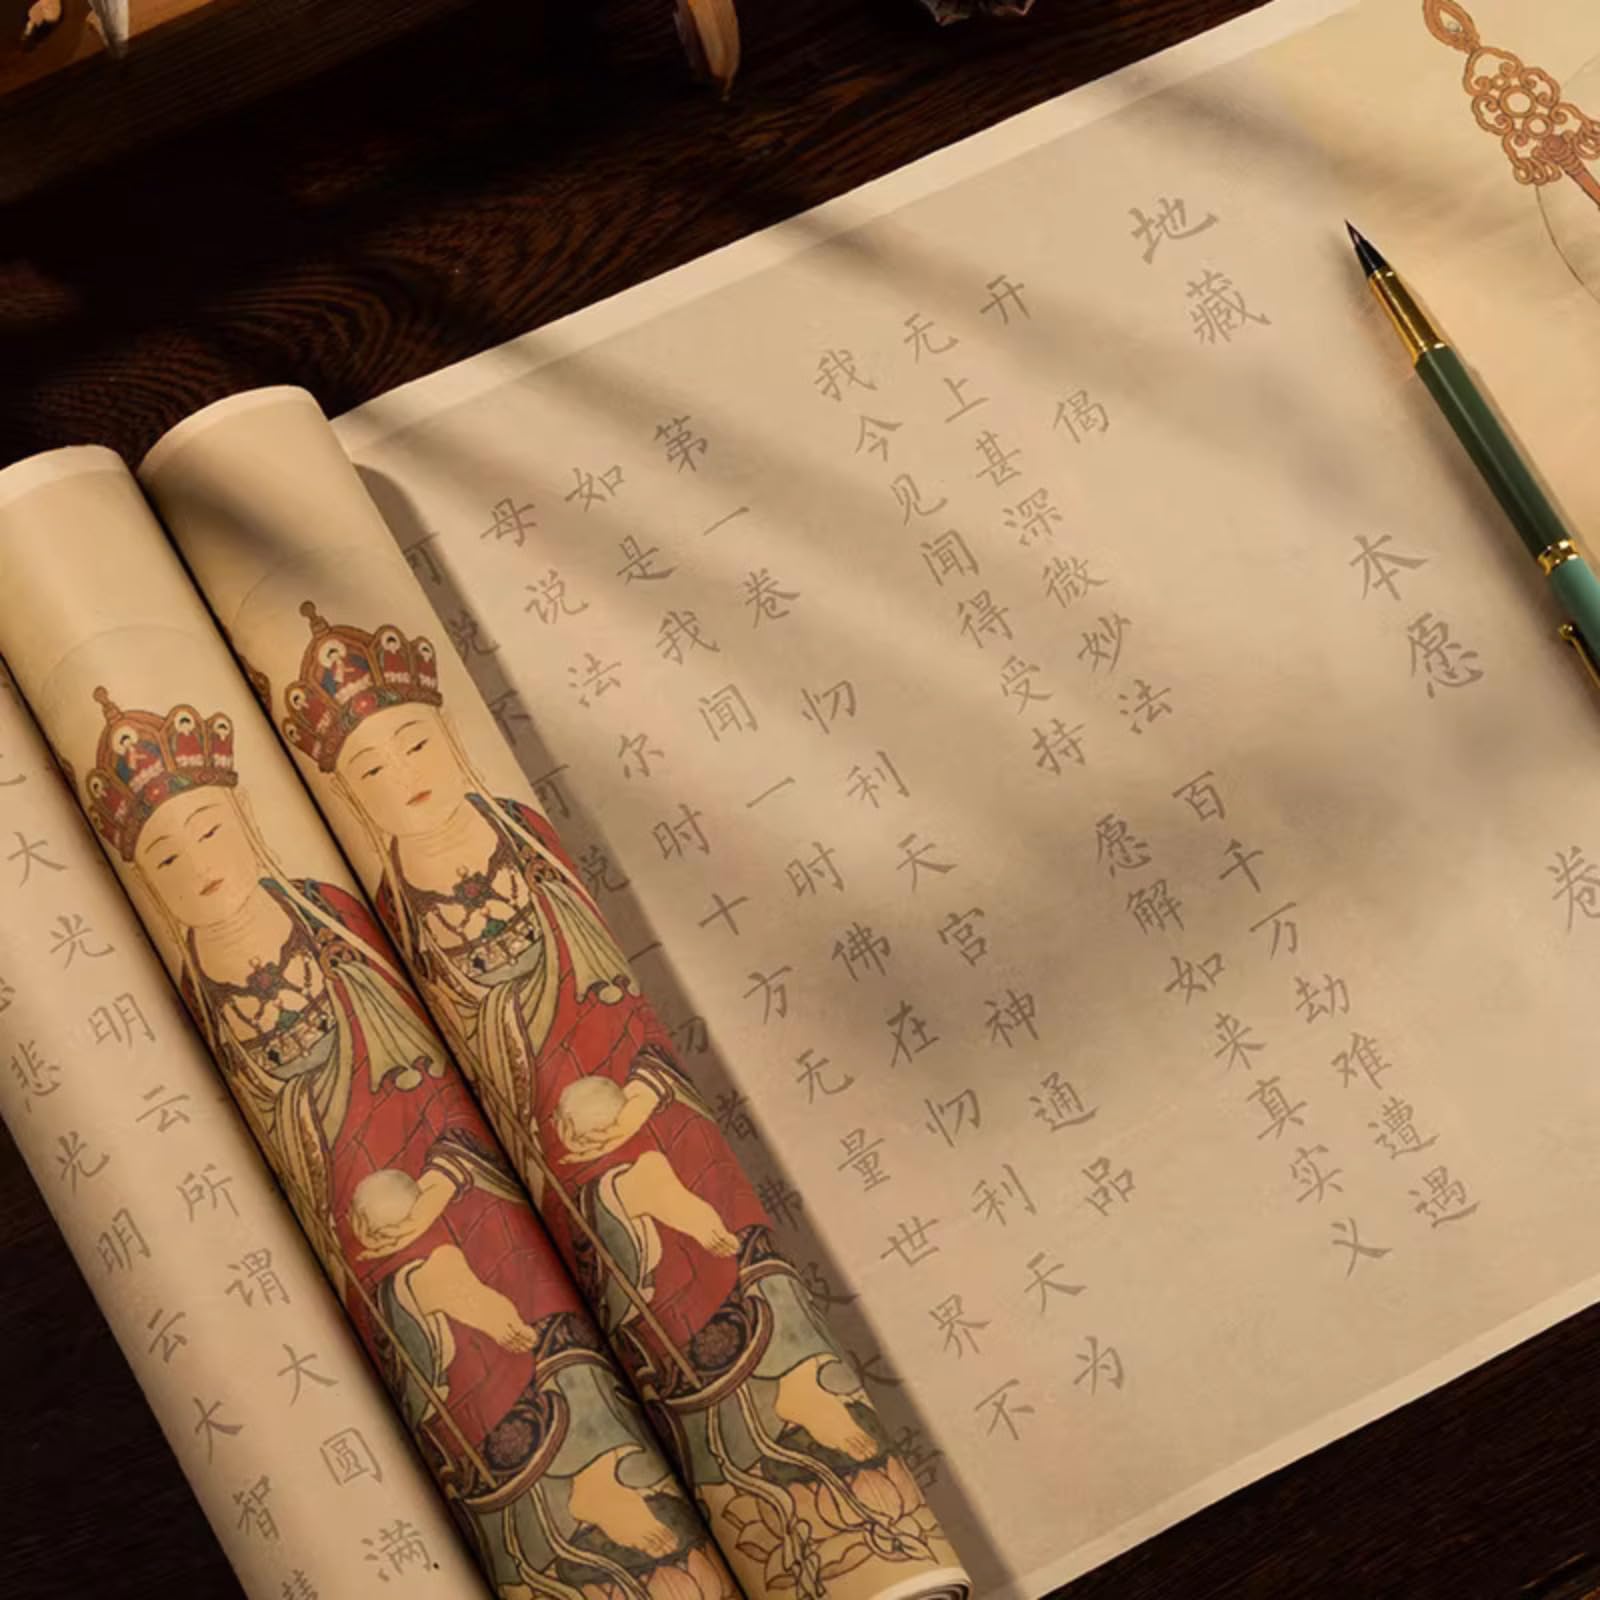 地藏本愿卷
开偈
无上甚深微妙法 百千万劫难遭遇
我今见闻得受持 愿解如来真实义
第一卷 忉利天宫神通品
如是我闻一时佛在忉利天为
母说法尔时十方无量世界不
可说不可说一切佛及大菩
大光明云所谓大圆满
悲光明云大智慧